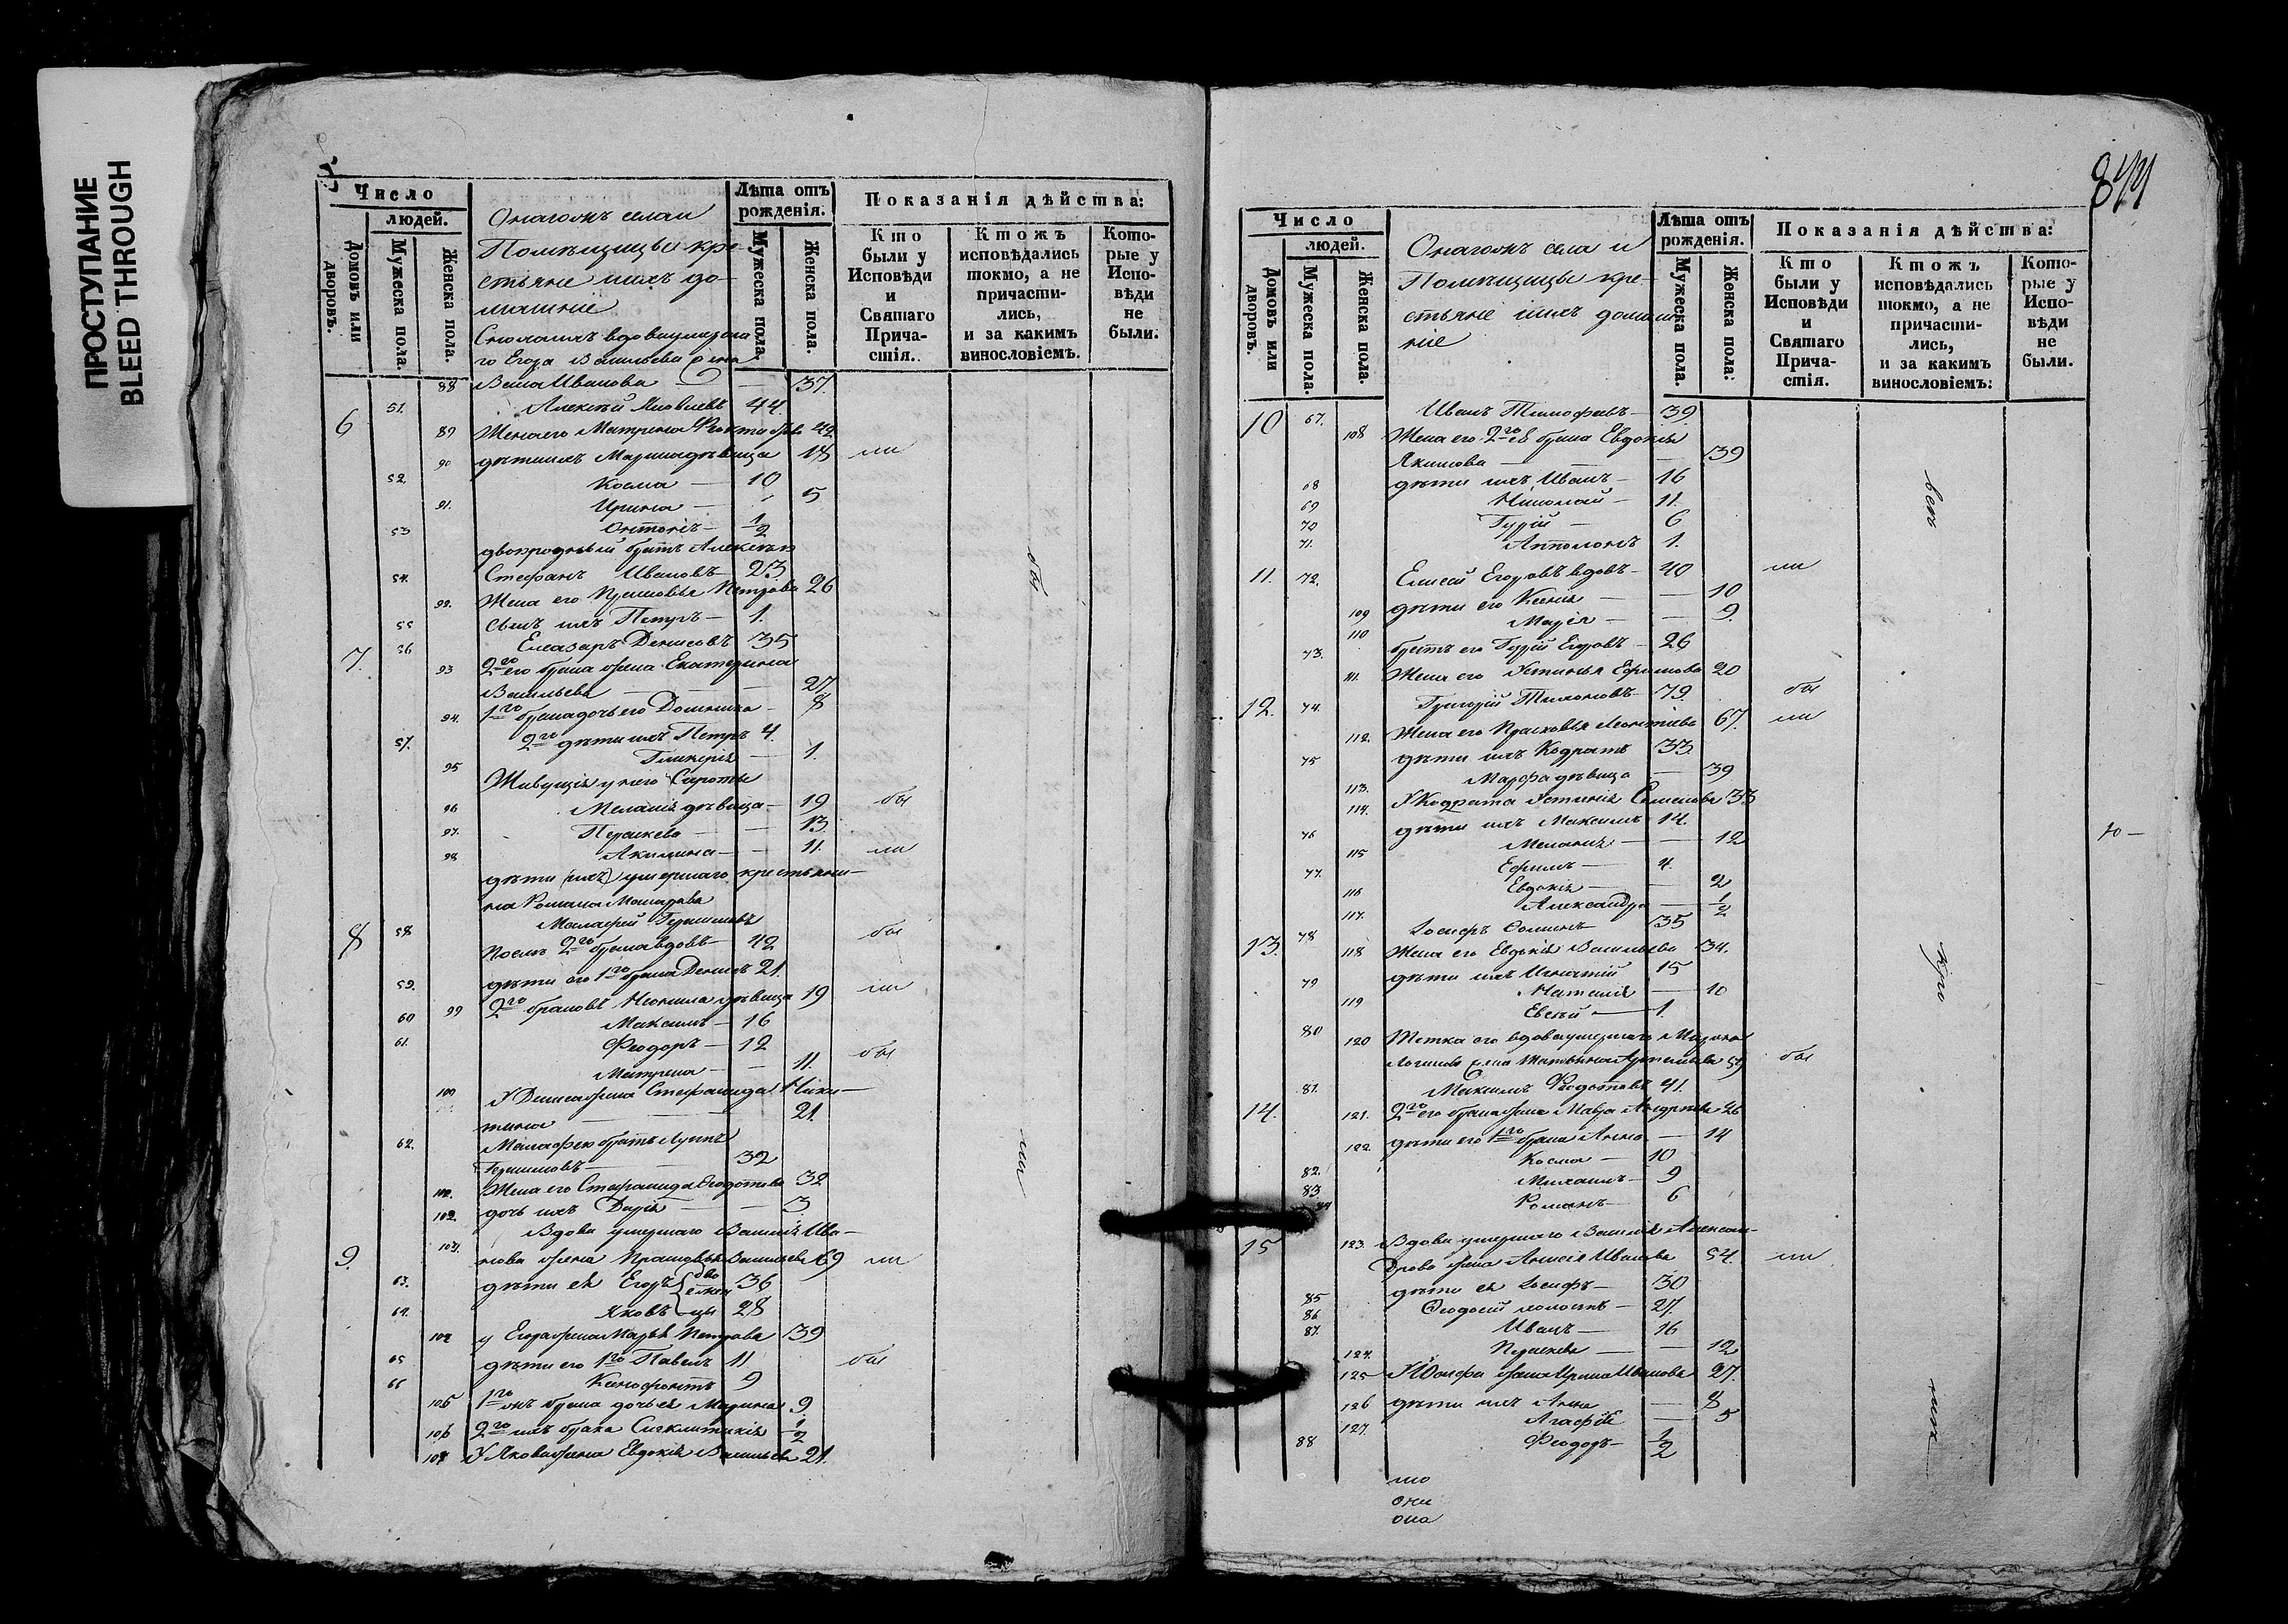 ПРОСТУПАНИЕ
BLEED THROUGH
Число
людей.
Домовъ или дворовъ.
Мужеска пола.
Женска пола.
Онагожъ села и
Помѣщицы кре-
стьяне ихъ до-
машніе
Лѣта отъ рожденія.
Мужеска пола.
Женска пола.
Показанія дѣйства:
Кто были у Исповѣди и Святаго Прича-стія.
Ктожъ исповѣдались токмо, а не причасти-лись, и за какимъ винословіемъ.
Кото-рые у Испо-вѣди не были.
вдова умерша
го Егора Васильева жена
88 Иванова — 37.
6 51. Алексѣй Яковлевъ 44.
89 Жена его Матрина 42
90 дѣти ихъ Марина дѣвица 18 ли
52. Косма — 10
91. Ирина — 5
53 Онтоній — 1/2
двоюродный братъ Алексѣя
54. Стефанъ Ивановъ — 23
92. Жена его Прасковья Петрова 26
55 сынъ ихъ Петръ — 1.
7. 56 Елеазаръ Денисовъ 35
93 2го его брака жена Екатерина
Васильева — 27
94. 1го брака дочь его Домника — 8
57. 2го дѣти ихъ Петръ 4.
95 Гликерія — 1.
Живущія у него Сироты
96 Меланія дѣвица — 19 бы
97. Параскева — 13
98 Акилина — 11. ли
дѣти (ихъ) умершаго крестьяни-
на Романа
8 58 Малафей Герасимовъ
послѣ 2го брака вдовъ — 42 бы
59. дѣти его 1го брака Денисъ 21.
99 2го браковъ Неонила дѣвица 19 ли
60 Максимъ — 16
61. Феодоръ — 12
Матрена — 11. бы
100 У Дениса жена Стефанида Ники-
тина — 21.
62. Малафею братъ Лупъ
Герасимовъ — 32
101. Жена его Стефанида Федотова 32
102 дочь ихъ Дарія — 3
Вдова умершаго Василія Ива-
9. 103. нова жена Прасковья Васильева 69 ли
63. дѣти ея Егоръ 36
64. Яковъ 28
104 у Егора жена Марья Петрова 39
65 дѣти его 1го Павелъ 11 бы
66 Ксенофонтъ 9
105 1го брака дочь ея Марина 9
106 2го ихъ брака Синклитикія 1/2
107 У Якова жена Евдокія Васильева 21.
бы
ли
877
Число
людей.
Домовъ или дворовъ.
Мужеска пола.
Женска пола.
Онагожъ села и
Помѣщицы кре-
стьяне ихъ домаш
ніе
Лѣта отъ рожденія.
Мужеска пола.
Женска пола:
Показанія дѣйства:
Кто были у Исповѣди и Святаго Прича-стія.
Ктожъ исповѣдались токмо, а не причасти-лись, и за какимъ винословіемъ:
Кото-рые у Испо-вѣди не были.
10 67. Иванъ Тимофѣевъ — 39
108 Жена его 2го брака Евдокія
Якимова — 39
68 дѣти ихъ Иванъ — 16
69 Николай — 11.
70 Гурій — 6
71. Апполонъ 1.
11. 72. Елисей Егоровъ вдовъ — 40 ли
109 дѣти его Ксенія — 10
110 Марія — 9.
73. братъ его Гурій Егоровъ — 26
111. Жена его Устинья Ефимова 20
12. 74. Григорій Тихоновъ — 79. бы
112. Жена его Прасковья Леонтіева 67. ли
75 дѣти ихъ Кодратъ 33.
113. Марфа дѣвица — 39
114. У Кодрата Устинія Семенова 33
76 дѣти ихъ Максимъ 14.
115 Меланія — 12
77. Ефимъ — 4.
116 Евдокія — 2
117. Александра — 1/2
13. 78 Іосифъ 35
118 Жена его Евдокія Васильева 34.
79 дѣти ихъ Игнатій 15
119 Наталія — 10
80 Евсѣй — 1.
120 Тетка его вдова умершаго Мирона
жена 59 бы
14. 81. Максимъ Федотовъ 41.
121. 2го его брака жена Мавра Андреева 26
122. дѣти его 1го брака Анна — 14
82. Косма — 10
83 Михаилъ — 9
84 Романъ — 6
15 123. Вдова умершаго Василія Алексан-
дрова жена Анисія Иванова 54. ли
85 дѣти ея Іосифъ — 30
86 Феодосій холостъ — 27.
87. Иванъ — 16
124. Параскева — 12
125 У Іосифа жена Ирина Иванова 27.
126 дѣти ихъ Анна — 8
127. Агафія — 5
88 Феодоръ — 1/2
то
они
она